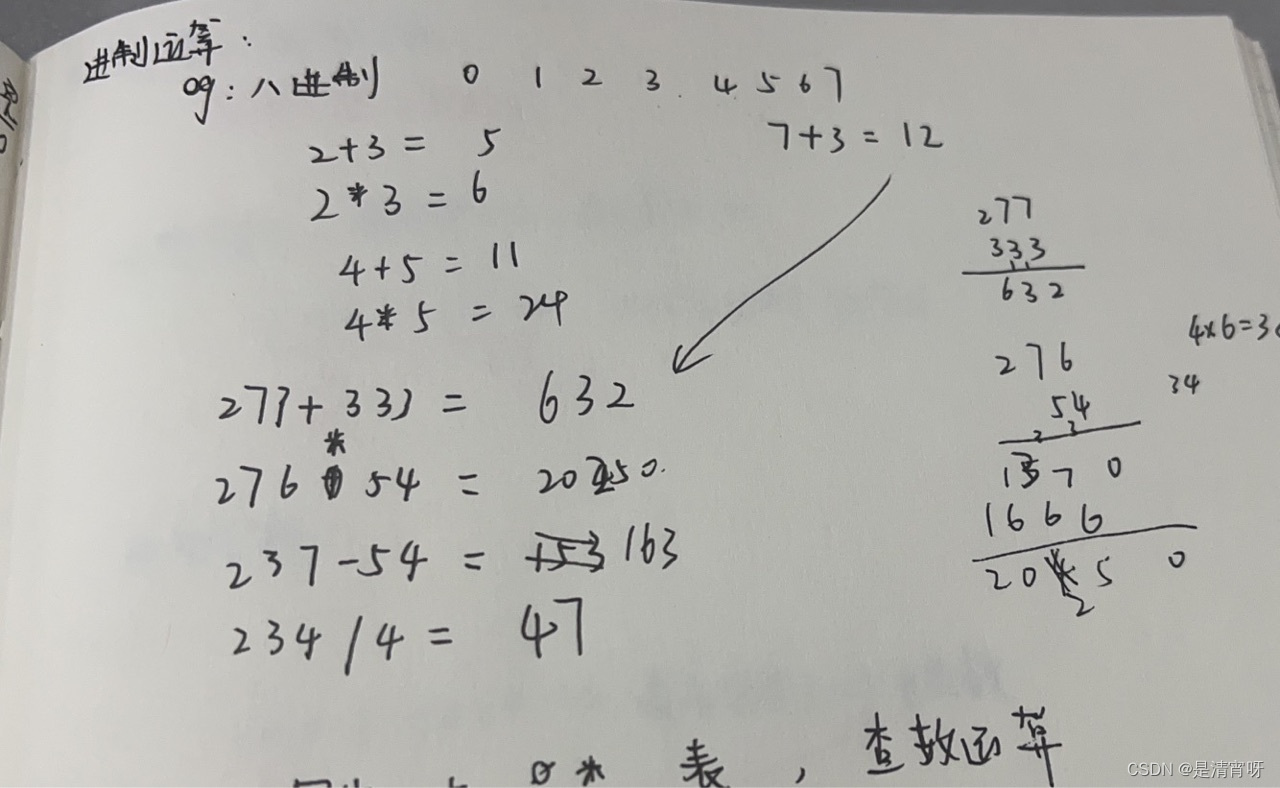 进制运算：
og：八进制 0 1 2 3 4 5 6 7
2+3 = 5
7+3 = 12
2*3 = 6
4+5 = 11
4*5 = 24
277+333 = 632
276 * 54 = 20250.
237-54 = 163
234/4 = 47
277
333
632
4×6=3
34
276
54
2 3
1370
1666
20250
表，查数运算
CSDN @是清宵呀